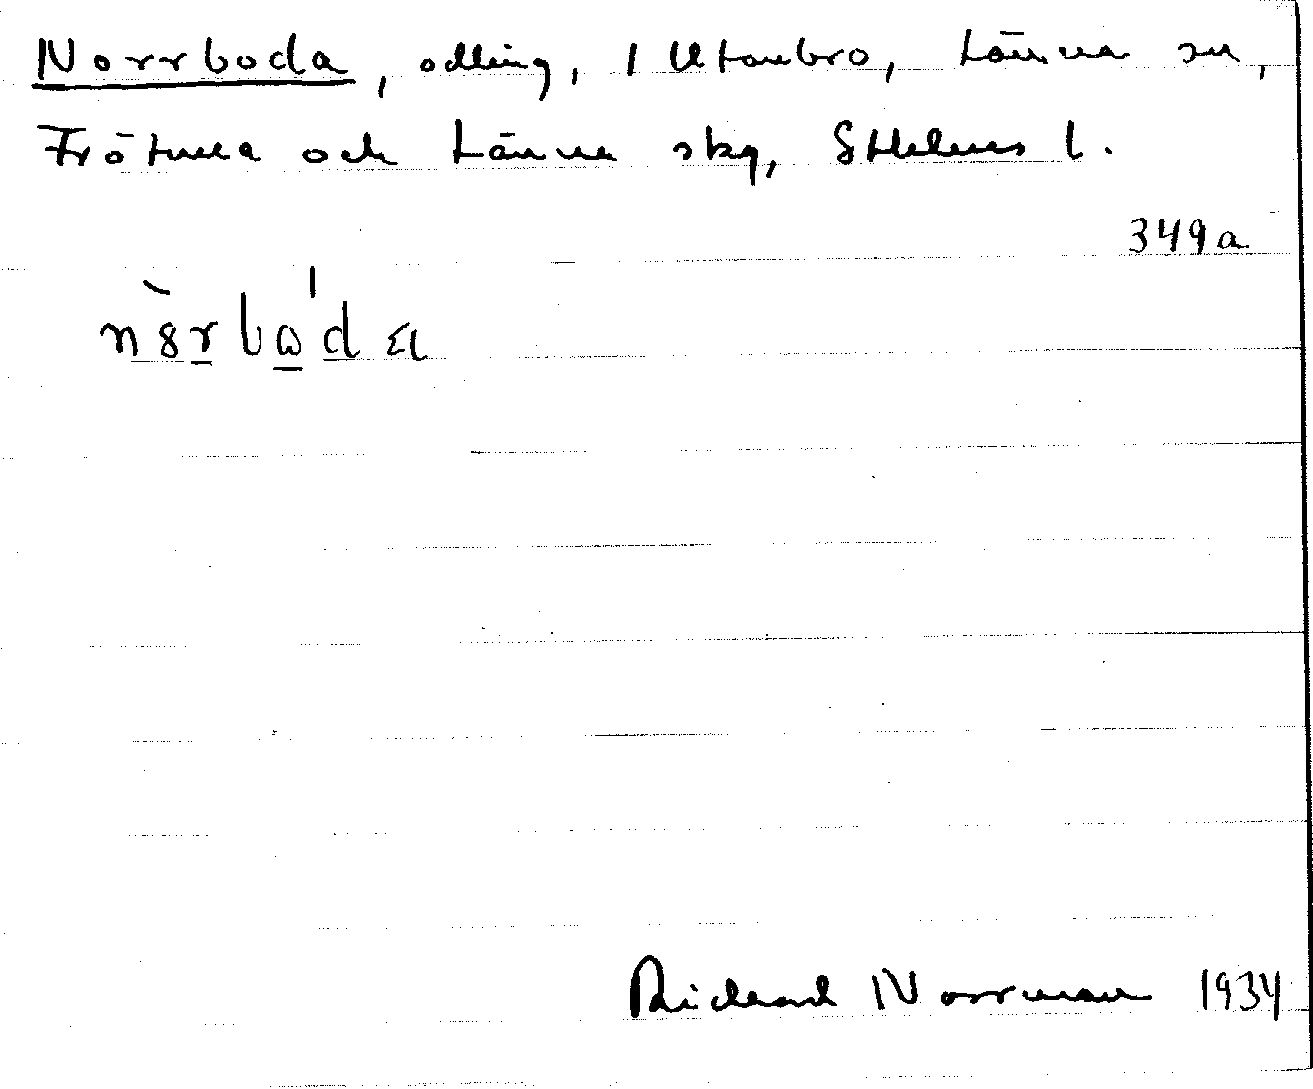 Norrboda, odling, 1 Utanbro, Länna sn,
Frötuna och Länna skg, Sthlms l.
349a
Rickard Norrman 1934